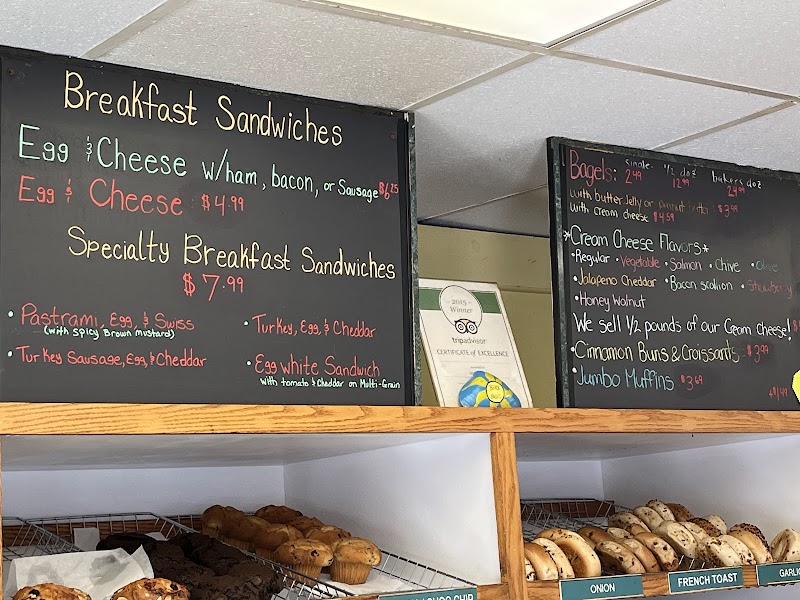 Breakfast Sandwiches
Egg & Cheese w/ham, bacon, or Sausage $6.25
Egg & Cheese $4.99
Specialty Breakfast Sandwiches
$7.99
• Pastrami, Egg, & Swiss
(with spicy Brown mustard)
• Turkey, Egg, & Cheddar
• Turkey Sausage, Egg, & Cheddar
• Egg white Sandwich
with tomato & Cheddar on Multi-Grain
2015
Winner
tripadvisor
CERTIFICATE of EXCELLENCE
Bagels: single 1/2 doz bakers doz
2.49 12.99 24.99
with butter Jelly or peanut butter $3.99
with cream cheese $4.59
*Cream Cheese Flavors*
•Regular •Vegetable •Salmon •Chive •Olive
•Jalapeno Cheddar •Bacon scallion •Strawberry
•Honey Walnut
We sell 1/2 pounds of our Cream cheese! $
•Cinnamon Buns & Croissants $3.99
•Jumbo Muffins $3.69
CHIP
ONION
FRENCH TOAST
GARLIC